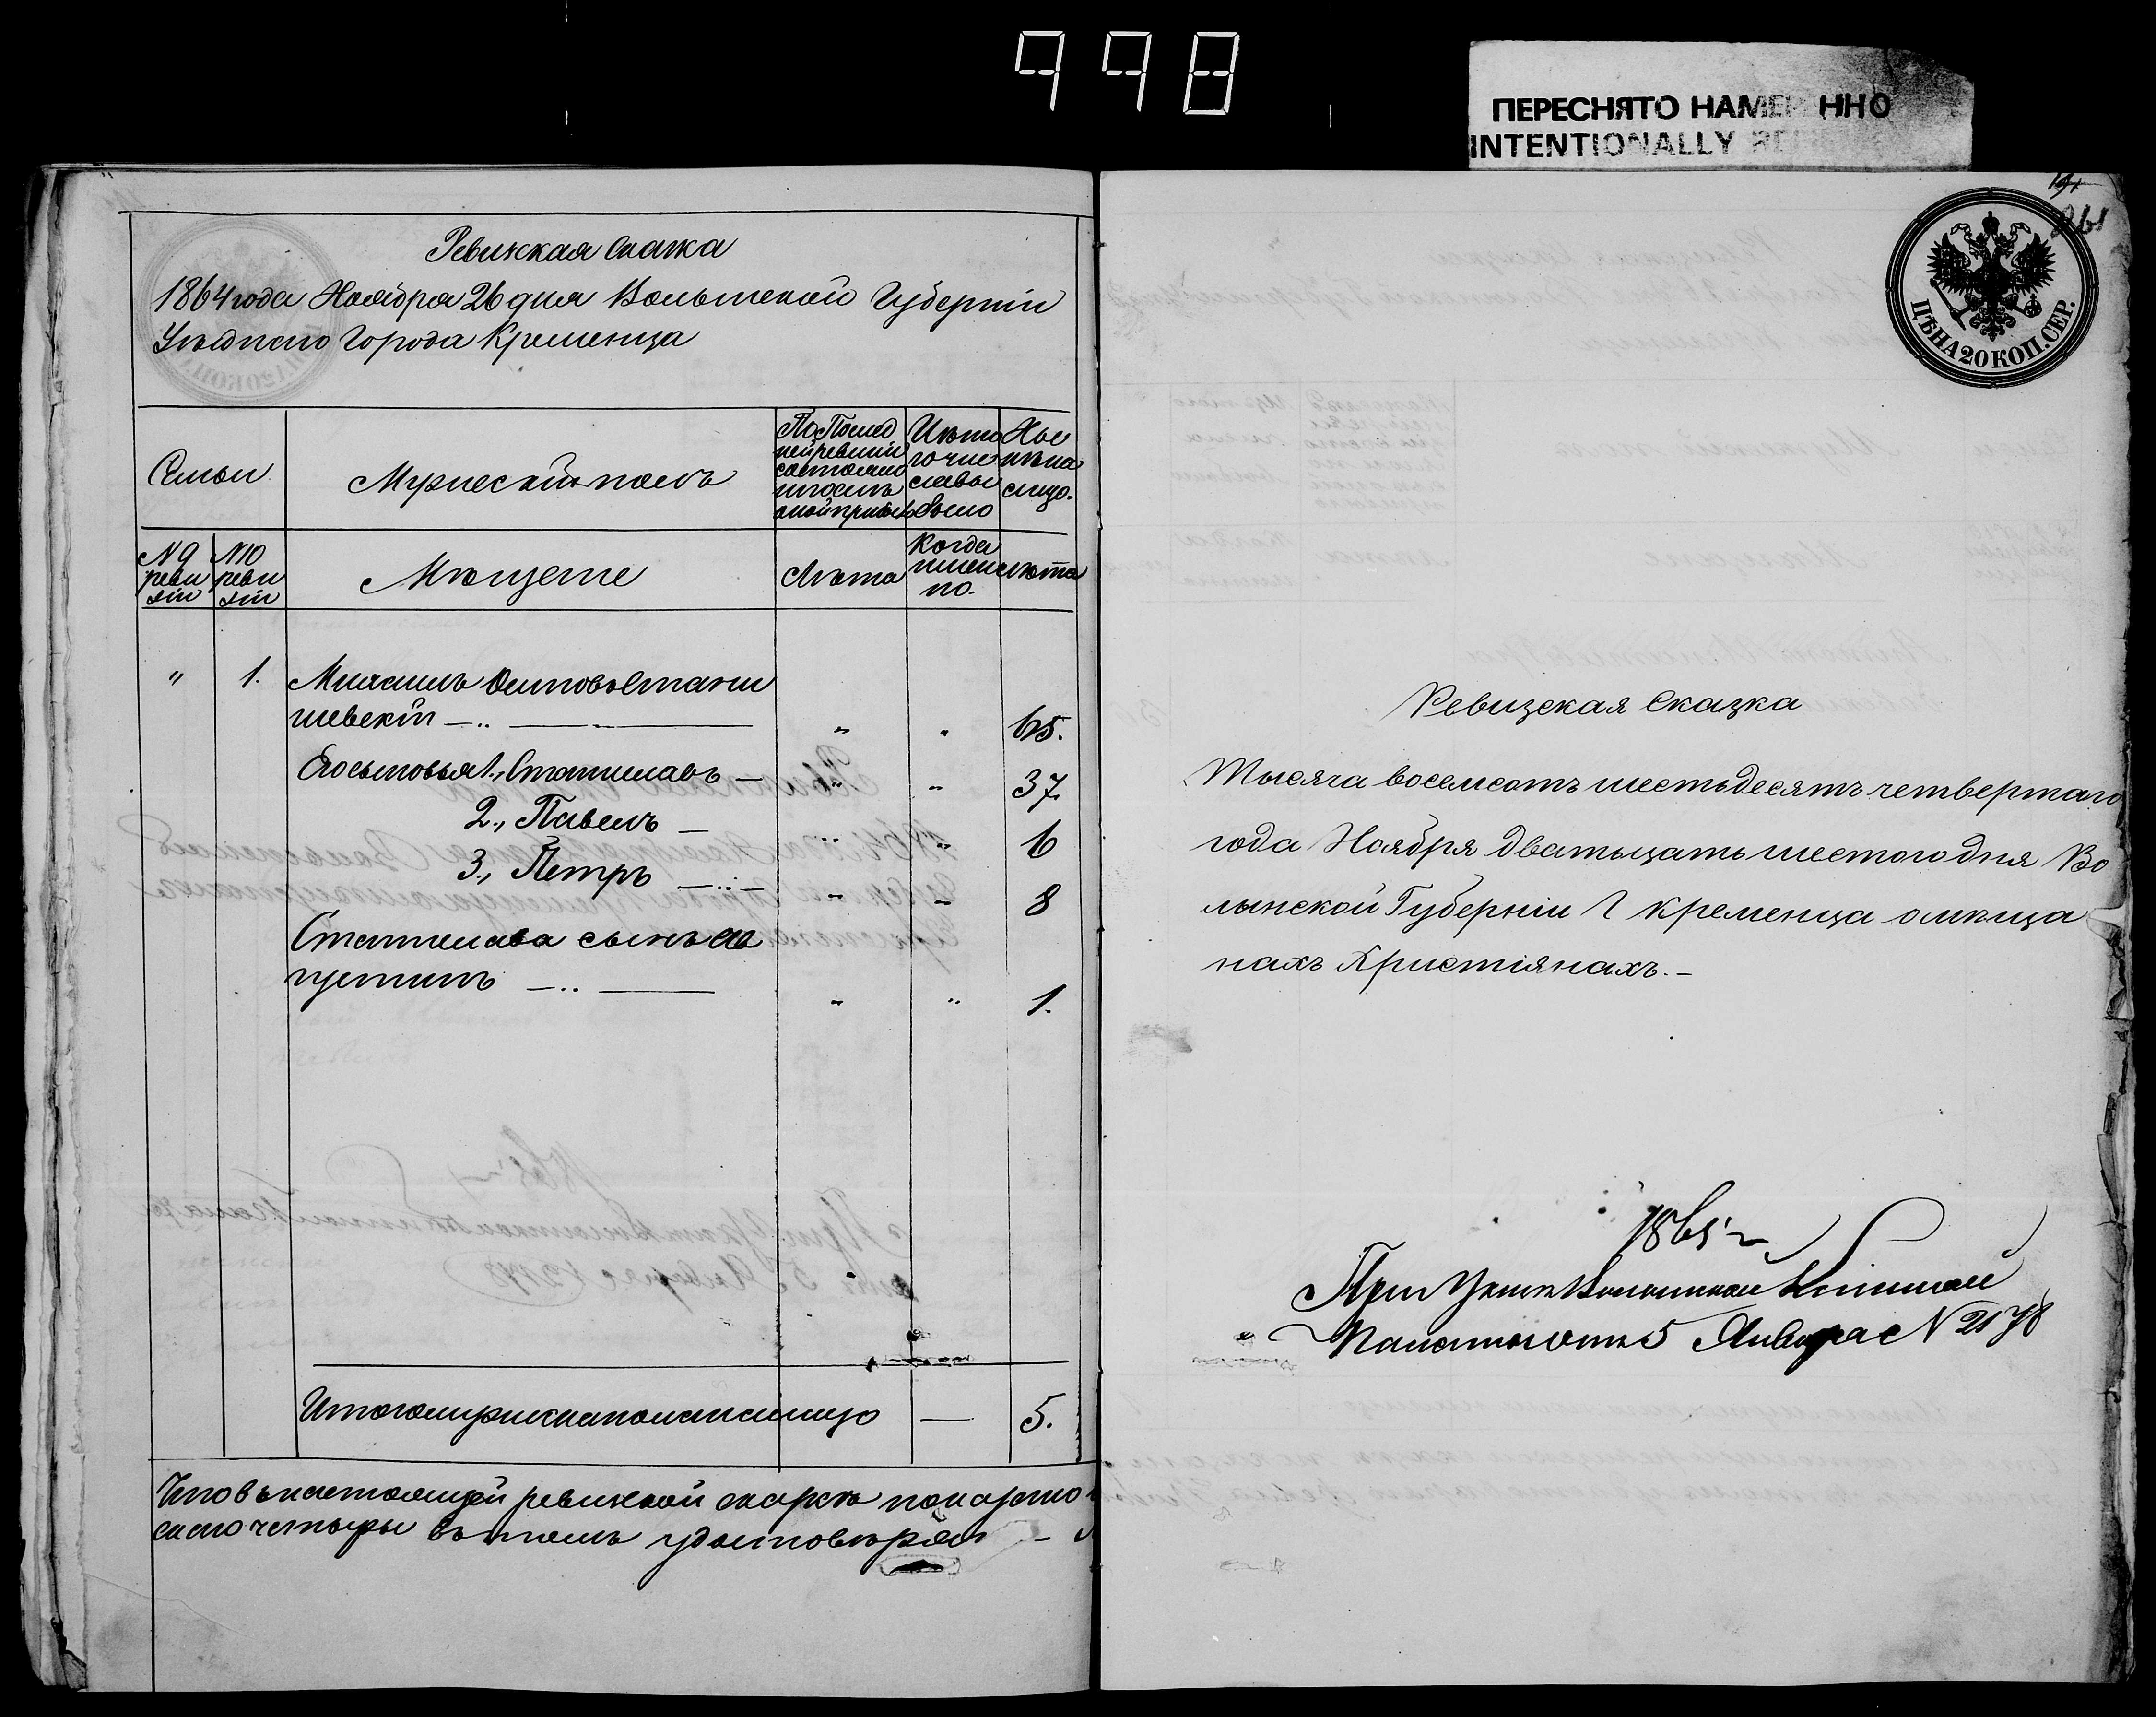 998
ПЕРЕСНЯТО НАМЕР ННО
INTENTIONALLY
Ревизская Сказка
1864 года Ноября 26 дня Волынской Губерніи
Уѣзднаго Города Кременца
Семьи
Мужескій полъ
По послед
ней ревизіи
состояло
Изъ то
го чис
ла вы
было
Ны
нѣ на
лицо.
N 9
реви
зіи
N 10
реви
зіи
Мѣщане
Лѣта
Когда
имен
но.
лѣта
" 1. Осиповъ Стани
шевскій " " 65.
Его сыновья 1., Станиславъ 37.
2., Павелъ 6
3., Петръ 8
Станислава сынъ Ав
густинъ " " 1.
Итого мужеска пола на лицо — 5.
Что въ настоящей ревизской сказкѣ показано
въ томъ удостовѣряю
ЦѢНА 20 КОП. СЕР.
Ревизская Сказка
Тысяча восемсотъ шестьдесятъ четвертаго
года Ноября дватьцать шестого дня Во
лынской Губерніи Г Кременца о мѣща
нахъ Христіянахъ.
1865 г
При Указѣ Волынской Казенной
Палаты отъ 5 Января N 2178